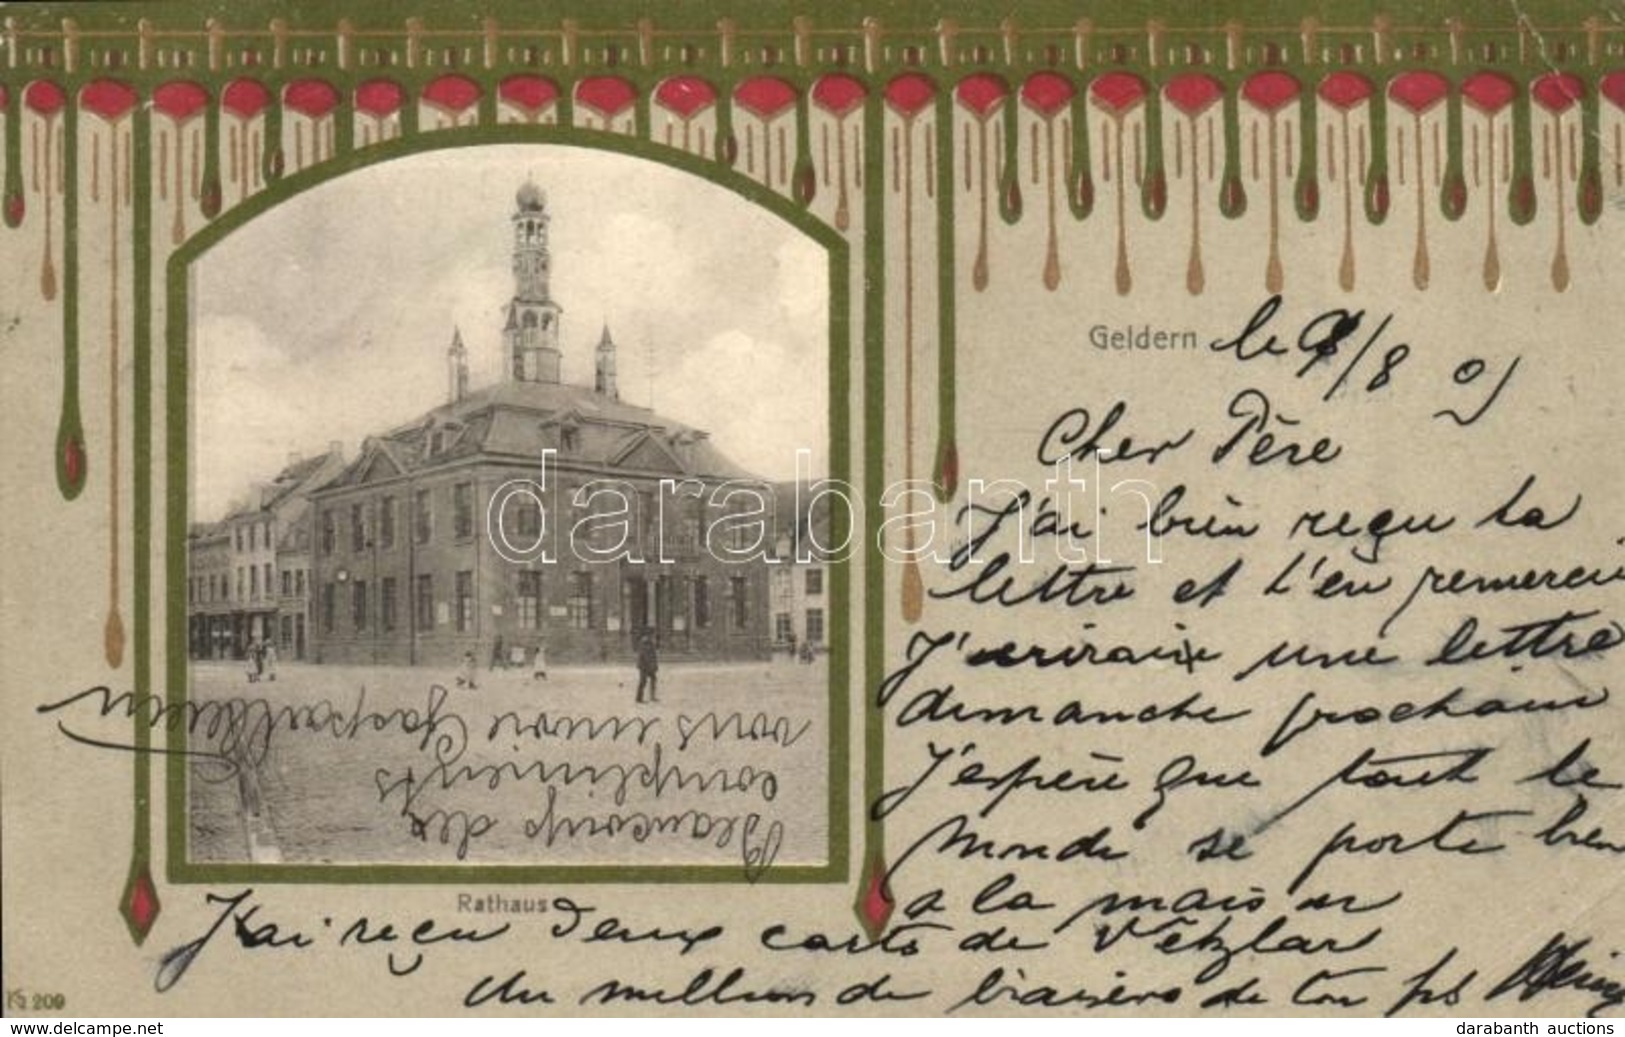 Geldern le 9/8 05
Cher Père
J'ai bien reçu ta
lettre et t'en remercie
J'ecrirai une lettre
dimanche prochain
J'espère que tout le
monde se porte bien
a la maison
Rathaus
J'ai reçu deux carts de Vetzlar
Un million de baisers de ton fils
Beaucoup de
compliments
vous envoie
209
darabanth
www.delcampe.net
darabanth auctions